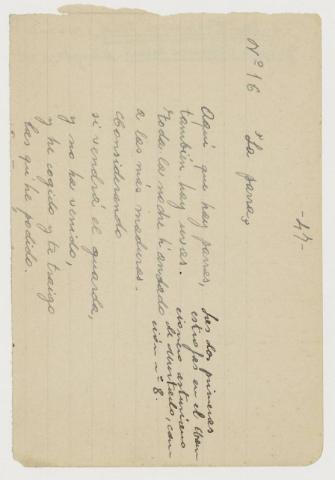 -47-
Nº 16 "La parra"
Aquí que hay parras,
también hay uvas.
Toda la noche h'andado
a las más maduras.
Considerando
si vendrá el guarda,
y no ha venido,
y he cogido y te traigo
las qui he podido.
Las dos primeras
estrofas en el Can-
cionero asturiano
de Torner, can-
ción nº 8.